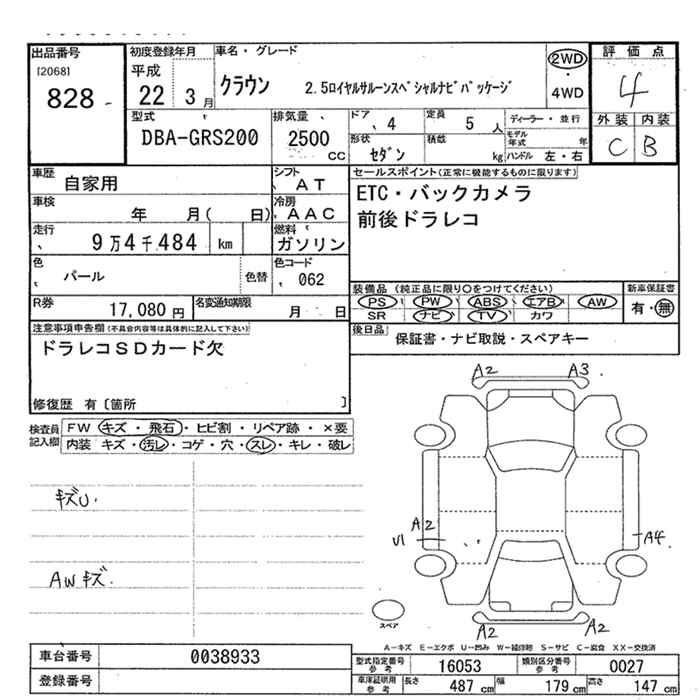 出品番号
[2068]
828
初度登録年月
平成
22 3月
車名・グレード
クラウン 2.5ロイヤルサルーンスペシャルナビパッケージ
2WD
・
4WD
評価点
4
外装 内装
C B
型式
DBA-GRS200
排気量
2500
CC
ドア 4
定員 5 人
ディーラー・並行
形状
セダン
積載 kg
モデル年式 年
ハンドル 左・右
車歴
自家用
シフト
AT
セールスポイント(正常に機能するものに限ります)
ETC・バックカメラ
前後ドラレコ
車検
年 月( 日)
冷房
AAC
走行
9万4千484 km
燃料
ガソリン
色
パール
色替
色コード
062
装備品 (純正品に限り○をつけてください)
PS PW ABS エアB AW
SR ナビ TV カワ
新車保証書
有・無
R券
17,080円
名変通知期限
月 日
後日品
保証書・ナビ取説・スペアキー
注意事項申告欄(不具合内容等は具体的に記入して下さい)
ドラレコSDカード欠
修復歴 有〔箇所 〕
検査員記入欄
FW キズ・飛石・ヒビ割・リペア跡・×要
内装 キズ・汚レ・コゲ・穴・スレ・キレ・破レ
キズU.
AWキズ.
A2 A3
A2
U1
A4
A2 A2
スペア
A-キズ E-エクボ U-凹み W-補修跡 S-サビ C-腐食 XX-交換済
車台番号
0038933
登録番号
型式指定番号 参考
16053
類別区分番号 参考
0027
車庫証明用 参考
長さ 487 cm
幅 179 cm
高さ 147 cm